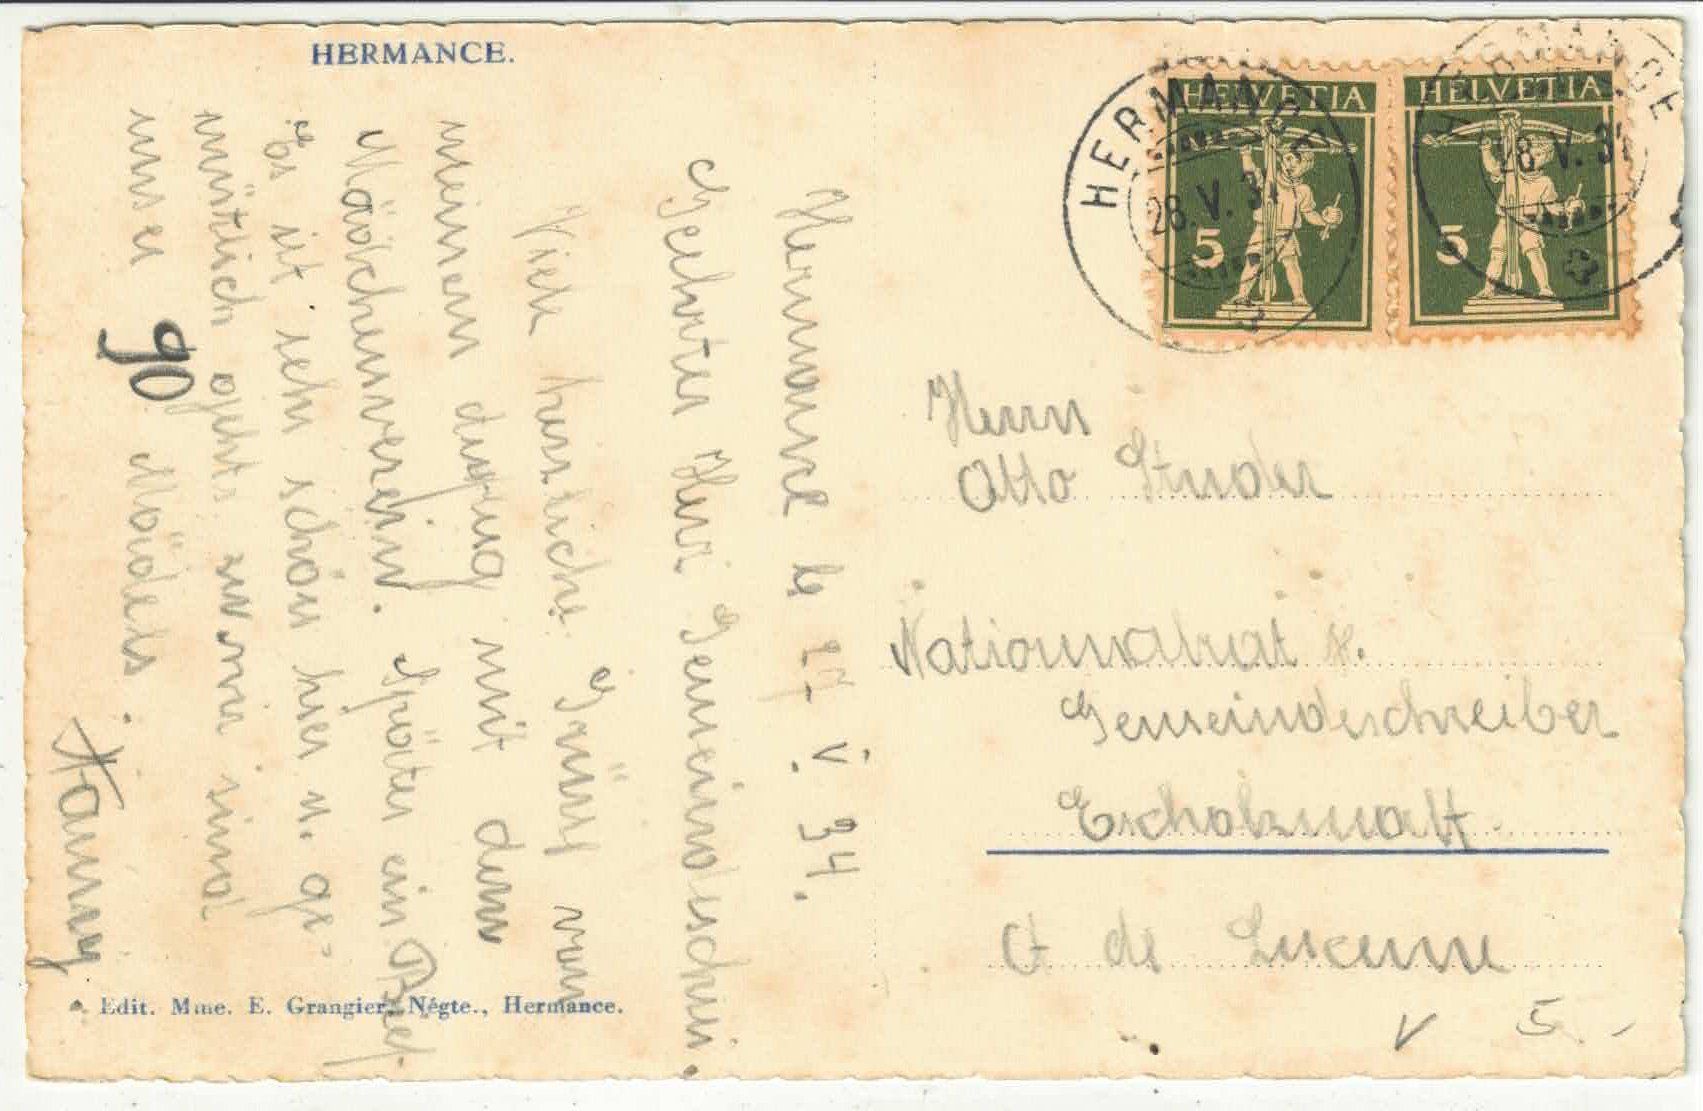 HERMANCE.
Hermance le 27. V. 34.
Geehrter Herr Gemeindeschrbr.
Viele herzliche Grüsse von
meinem Ausflug mit dem
Mädchenverein. Später ein Brief.
Es ist sehr schön hier u. ge-
mütlich geht's zu wir sind
unser 90 Mädels.
Fanny
Edit. Mme. E. Grangier, Négte., Hermance.
HELVETIA
5
HELVETIA
5
HERMANCE
28.V.34
HERMANCE
28.V.34
Herrn
Otto Studer
Nationalrat &.
Gemeindeschreiber
Escholzmatt
Ct de Lucerne
V 5.-